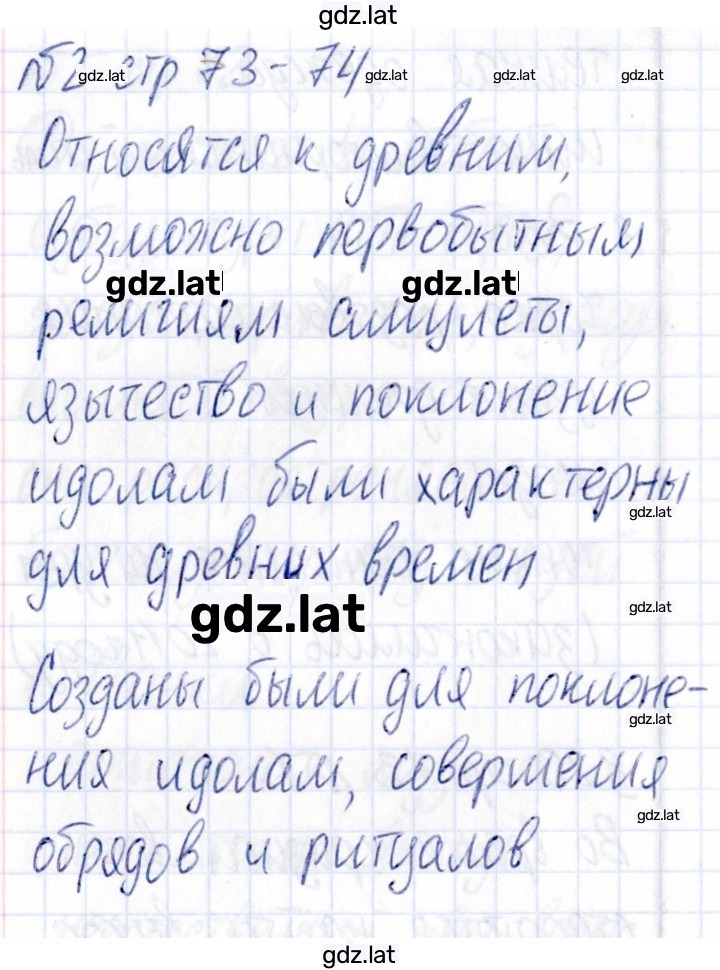 gdz.lat
№2 gdz.lat стр 73-74 gdz.lat gdz.lat gdz.lat
Относятся к древним,
возможно первобытным
gdz.lat gdz.lat
религиям амулеты,
язычество и поклонение
идолам были характерны
gdz.lat
для древних времен
gdz.lat gdz.lat
Созданы были для поклоне-
gdz.lat
ния идолам, совершения
gdz.lat
обрядов и ритуалов
gdz.lat